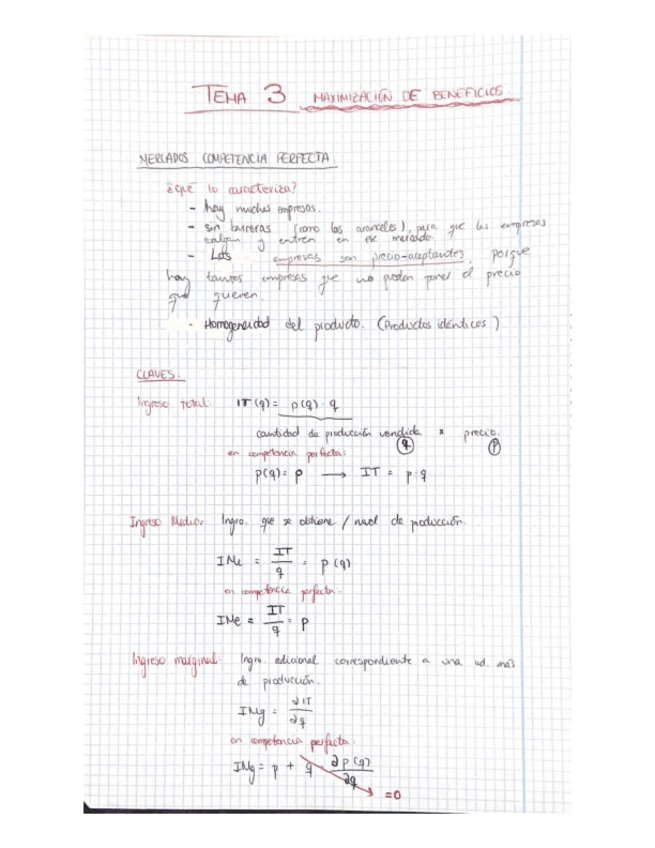 TEMA 3 MAXIMIZACIÓN DE BENEFICIOS.
MERCADOS COMPETENCIA PERFECTA.
¿qué lo caracteriza?
- hay muchas empresas.
- sin barreras (como los aranceles), para que las empresas
salgan y entren en ese mercado.
- Las empresas son precio-aceptantes, porque
hay tantas empresas que no poden poner el precio
que queren.
- Homogeneidad del producto. (Productos idénticos)
CLAVES.
Ingreso total: IT(q) = p(q) · q
cantidad de producción vendida × precio.
q p
en competencia perfecta:
p(q) = p → IT = p · q
Ingreso Medio: Ingro. que se obtiene / nivel de producción.
IMe = IT/q = p(q)
en competencia perfecta:
IMe = IT/q = p
Ingreso marginal: Ingro. adicional correspondiente a una ud. más
de producción.
IMg = ∂IT/∂q
en competencia perfecta:
IMg = p + q · ∂p(q)/∂q
=0